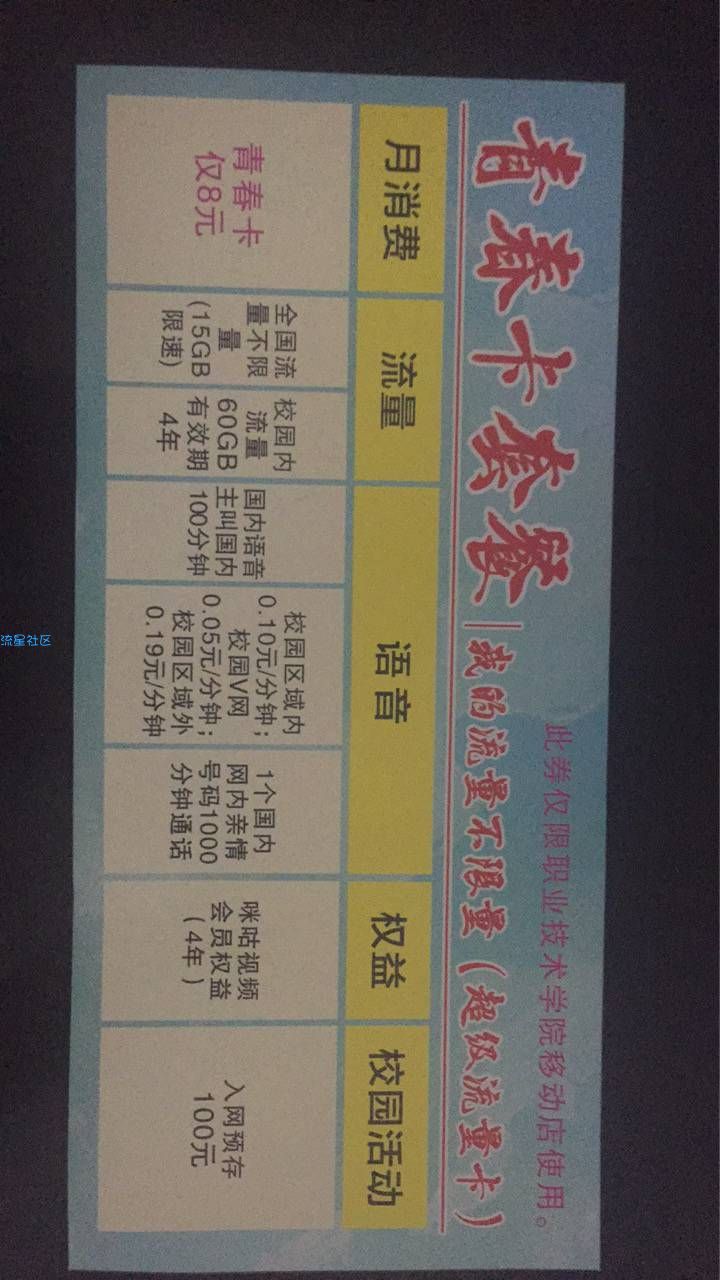 此券仅限职业技术学院移动店使用。
青春卡套餐|我的流量不限量(超级流量卡)
月消费
流量
语音
权益
校园活动
青春卡
仅8元
全国流
量不限
量
(15GB
限速)
校园内
流量
60GB
有效期
4年
国内语音
主叫国内
100分钟
校园区域内
0.10元/分钟;
校园V网
0.05元/分钟;
校园区域外
0.19元/分钟
1个国内
网内亲情
号码1000
分钟通话
咪咕视频
会员权益
(4年)
入网预存
100元
流星社区